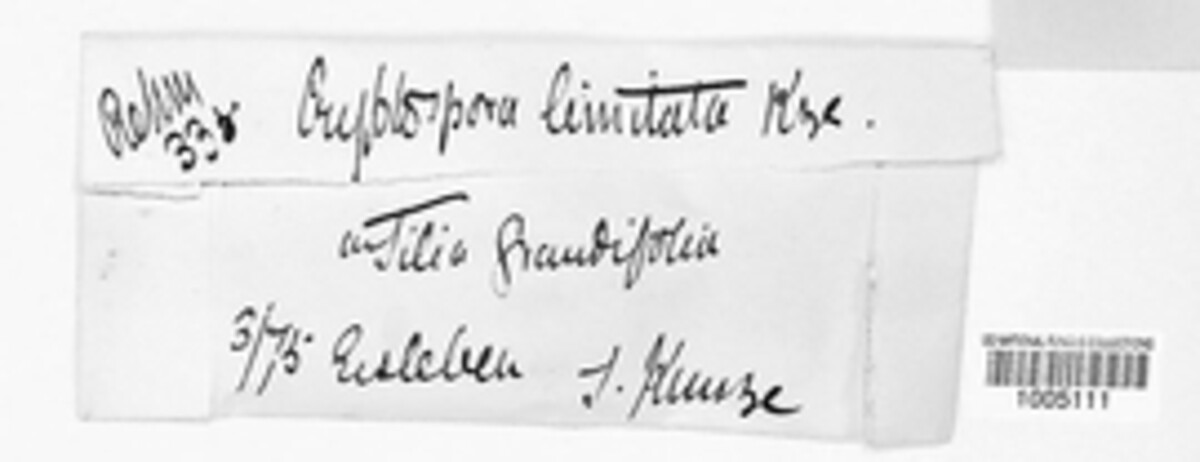 Rehm
338
Cryptospora limitata Kze.
an Tilia grandifolia
3/75 Eisleben J. Kunze
1005111